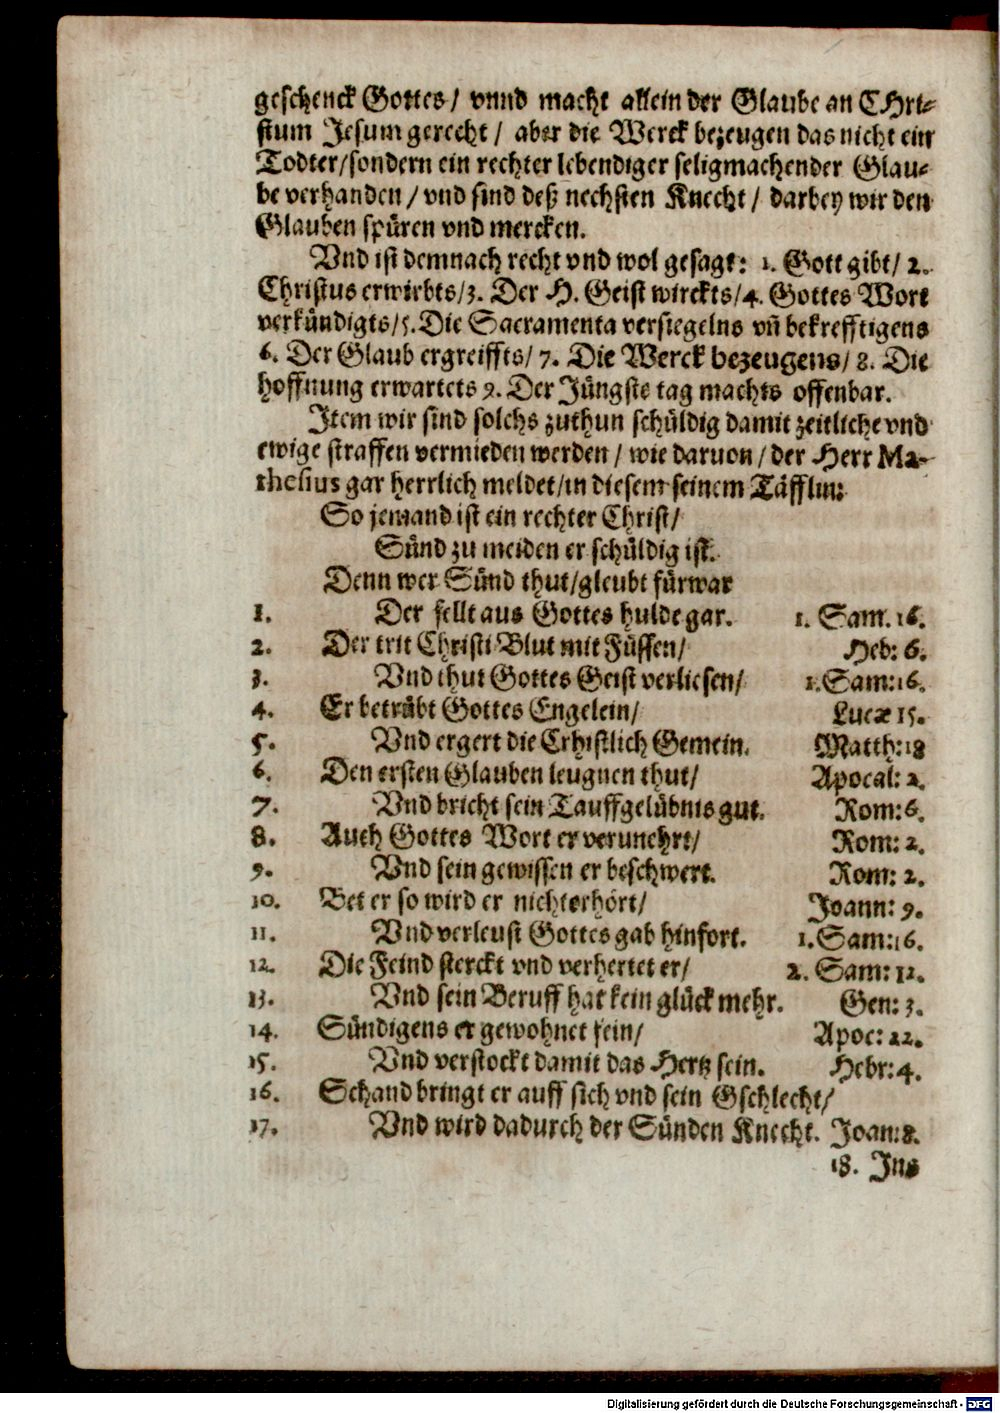 geschenck Gottes/ vnnd macht allein der Glaube an CHri-
stum Jesum gerecht/ aber die Werck bezeugen das nicht ein
Todter/sondern ein rechter lebendiger seligmachender Glau-
be verhanden/ vnd sind deß nechsten Knecht/ darbey wir den
Glauben spüren vnd mercken.
Vnd ist demnach recht vnd wol gesagt: 1. Gott gibt/ 2.
Christus erwirbts/3. Der H. Geist wirckts/4. Gottes Wort
verkündigts/5. Die Sacramenta versiegelns vñ bekrefftigens
6. Der Glaub ergreiffts/ 7. Die Werck bezeugens/ 8. Die
hoffnung erwartets 9. Der Jüngste tag machts offenbar.
Jtem wir sind solchs zuthun schüldig damit zeitliche vnd
ewige straffen vermieden werden/ wie daruon/ der Herr Ma-
thesius gar herrlich meldet/in diesem seinem Täfflin:
So jemand ist ein rechter Christ/
Sünd zu meiden er schüldig ist.
Denn wer Sünd thut/gleubt fürwar
1. Der fellt aus Gottes hulde gar. 1. Sam. 16.
2. Der trit Christi Blut mit Füssen/ Heb: 6.
3. Vnd thut Gottes Geist verliesen/ 1.Sam:16.
4. Er betrübt Gottes Engelein/ Lucæ 15.
5. Vnd ergert die Crhistlich Gemein. Matth:18
6. Den ersten Glauben leugnen thut/ Apocal: 2.
7. Vnd bricht sein Tauffgelübnis gut. Rom:6.
8. Auch Gottes Wort er verunehrt/ Rom: 2.
9. Vnd sein gewissen er beschwert. Rom: 2.
10. Bet er so wird er nicht erhört/ Joann: 9.
11. Vnd verleust Gottes gab hinfort. 1.Sam:16.
12. Die Feind sterckt vnd verhertet er/ 2. Sam: 12.
13. Vnd sein Beruff hat kein glück mehr. Gen: 3.
14. Sündigens er gewohnet sein/ Apoc: 22.
15. Vnd verstockt damit das Hertz sein. Hebr:4.
16. Schand bringt er auff sich vnd sein Gschlecht/
17. Vnd wird dadurch der Sünden Knecht. Joan:8.
18. Jns
Digitalisierung gefördert durch die Deutsche Forschungsgemeinschaft - DFG